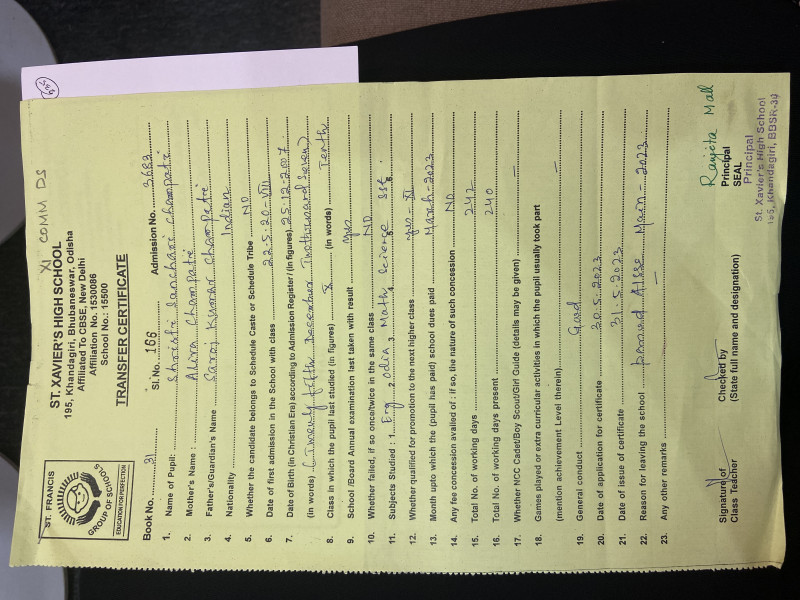 XI COMM DS
ST. FRANCIS
GROUP OF SCHOOLS
EDUCATION FOR PERFECTION
ST. XAVIER'S HIGH SCHOOL
195, Khandagiri, Bhubaneswar, Odisha
Affiliated To CBSE, New Delhi
Affiliation No. 1530086
School No.: 15500
TRANSFER CERTIFICATE
Book No. 31 Sl. No. 166 Admission No. 3683
1. Name of Pupil: Shristi Sanchari Champati
2. Mother's Name: Champati
3. Father's/Guardian's Name Saroj Kumar Champati
4. Nationality Indian
5. Whether the candidate belongs to Schedule Caste or Schedule Tribe NO
6. Date of first admission in the School with class 22-5-20-VIII
7. Date of Birth (in Christian Era) according to Admission Register / (In figures) 25-12-2007
(In words) (Twenty fifth December Twothousand Seven)
8. Class in which the pupil last studied (in figures) X (In words) Tenth
9. School /Board Annual examination last taken with result yes
10. Whether failed, if so once/twice in the same class NO
11. Subjects Studied : 1 Eng 2 Odia 3 Math 4 Science 5 SSt.
12. Whether qualified for promotion to the next higher class yes - XI
13. Month upto which the (pupil has paid) school dues paid March-2023
14. Any fee concession availed of : if so, the nature of such concession NO
15. Total No. of working days 242
16. Total No. of working days present 240
17. Whether NCC Cadet/Boy Scout/Girl Guide (details may be given) —
18. Games played or extra curricular activities in which the pupil usually took part
(mention achievement Level therein) —
19. General conduct Good
20. Date of application for certificate 20.5.2023
21. Date of issue of certificate 31.5.2023
22. Reason for leaving the school passed AISSE Main - 2023
23. Any other remarks —
Signature of
Class Teacher
Checked by
(State full name and designation)
Ranjeta Mall
Principal
SEAL
Principal
St. Xavier's High School
195, Khandagiri, BBSR-30